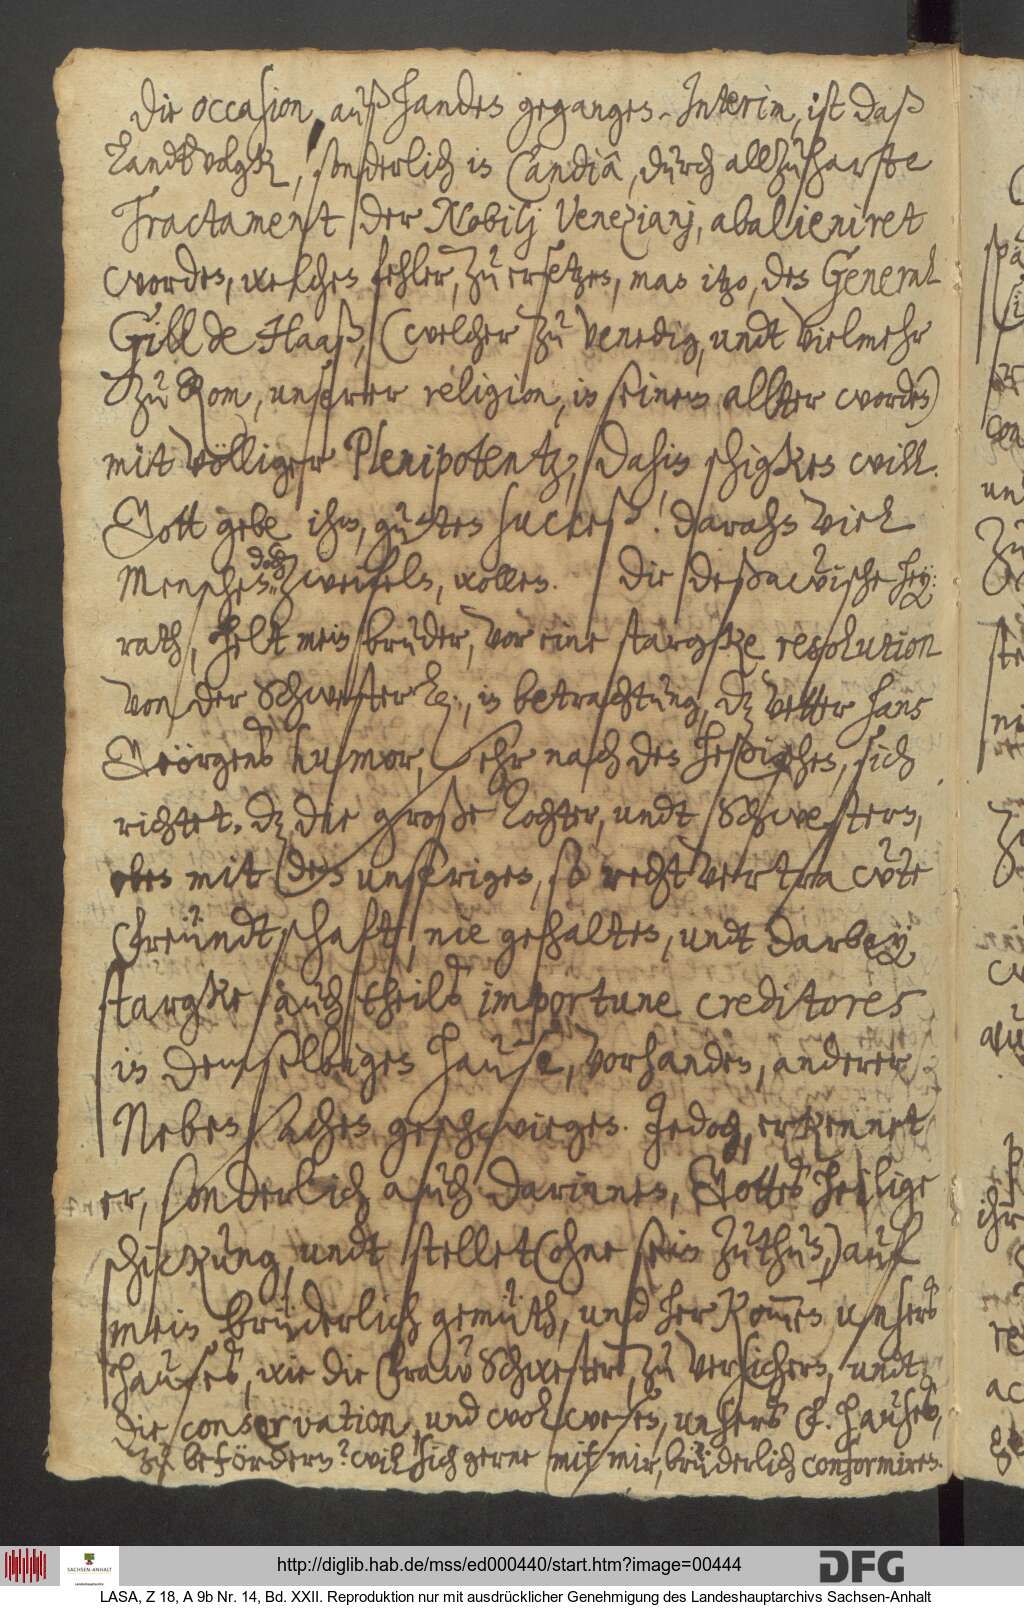 die occasion, auß handes gegangen. Interim, ist daß
Landtvolgk, sonderlich in Candia, durch allzuscharfte
Tractament der Nobilj Venezianj, abalieniret
worden, welchen fehler, zu ersetzen, man itzo, den General
Gill de Haaß, (welcher zu Venedig, undt vielmehr
zu Rom, unserer religion, in seinem allter worden)
mit völliger Plenipotentz, dahin schigken will.
Gott gebe ihm, guten succeß! daran viel
Menschen doch zweifeln, wollen. Die deßawische hey:
rath, helt mein bruder, vor eine stargke resolution
von der Schwester L., in betrachtung, dz vetter hans
Geörgens humor, sehr nach den heßischen, sich
richtet, dz die große Tochter, undt Schwestern,
eben mit den unsrigen, so recht vertrawte
freündtschaft, nie gehalten, undt darbey
stargke auch theils importune creditores
in demselbigen hause, vorhanden, anderer
Neben sachen geschwiegen. Jedoch, erkennet
er, sonderlich auch darinnen, Gottes heilige
schickung, undt stellet (ohne sein zuthun,) auf
mein brüderlich gemüth, und herkommen unsers
hauses, wie die fraw Schwester, zu versichern, undt
die conservation, und wolwesen, unsers f. hauses,
zu befördern? will sich gerne mit mir, brüderlich conformiren.
spä
con
und
zu
ste
ni
zu
ihr
re
ac
http://diglib.hab.de/mss/ed000440/start.htm?image=00444
SACHSEN-ANHALT
Landeshauptarchiv
DFG
LASA, Z 18, A 9b Nr. 14, Bd. XXII. Reproduktion nur mit ausdrücklicher Genehmigung des Landeshauptarchivs Sachsen-Anhalt